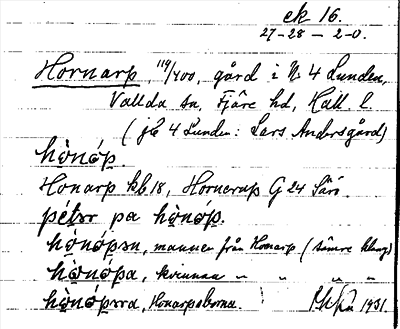 ek 16.
27-28-2-0.
Hornarp, 119/400, gård i N. 4 Lunden,
Vallda sn, Fjäre hd, Hall. l.
(jfr 4 Lunden: Lars Andersgård)
hò̱nóp.
Honarp kb 18, Hornerup G 24 Särö.
pétər pa hò̱nóp.
hò̱nópən, mannen från Honarp (sämre klang)
hò̱nópa, kvinnan " " " "
hò̱nópəra, Honarpsborna. 1931.